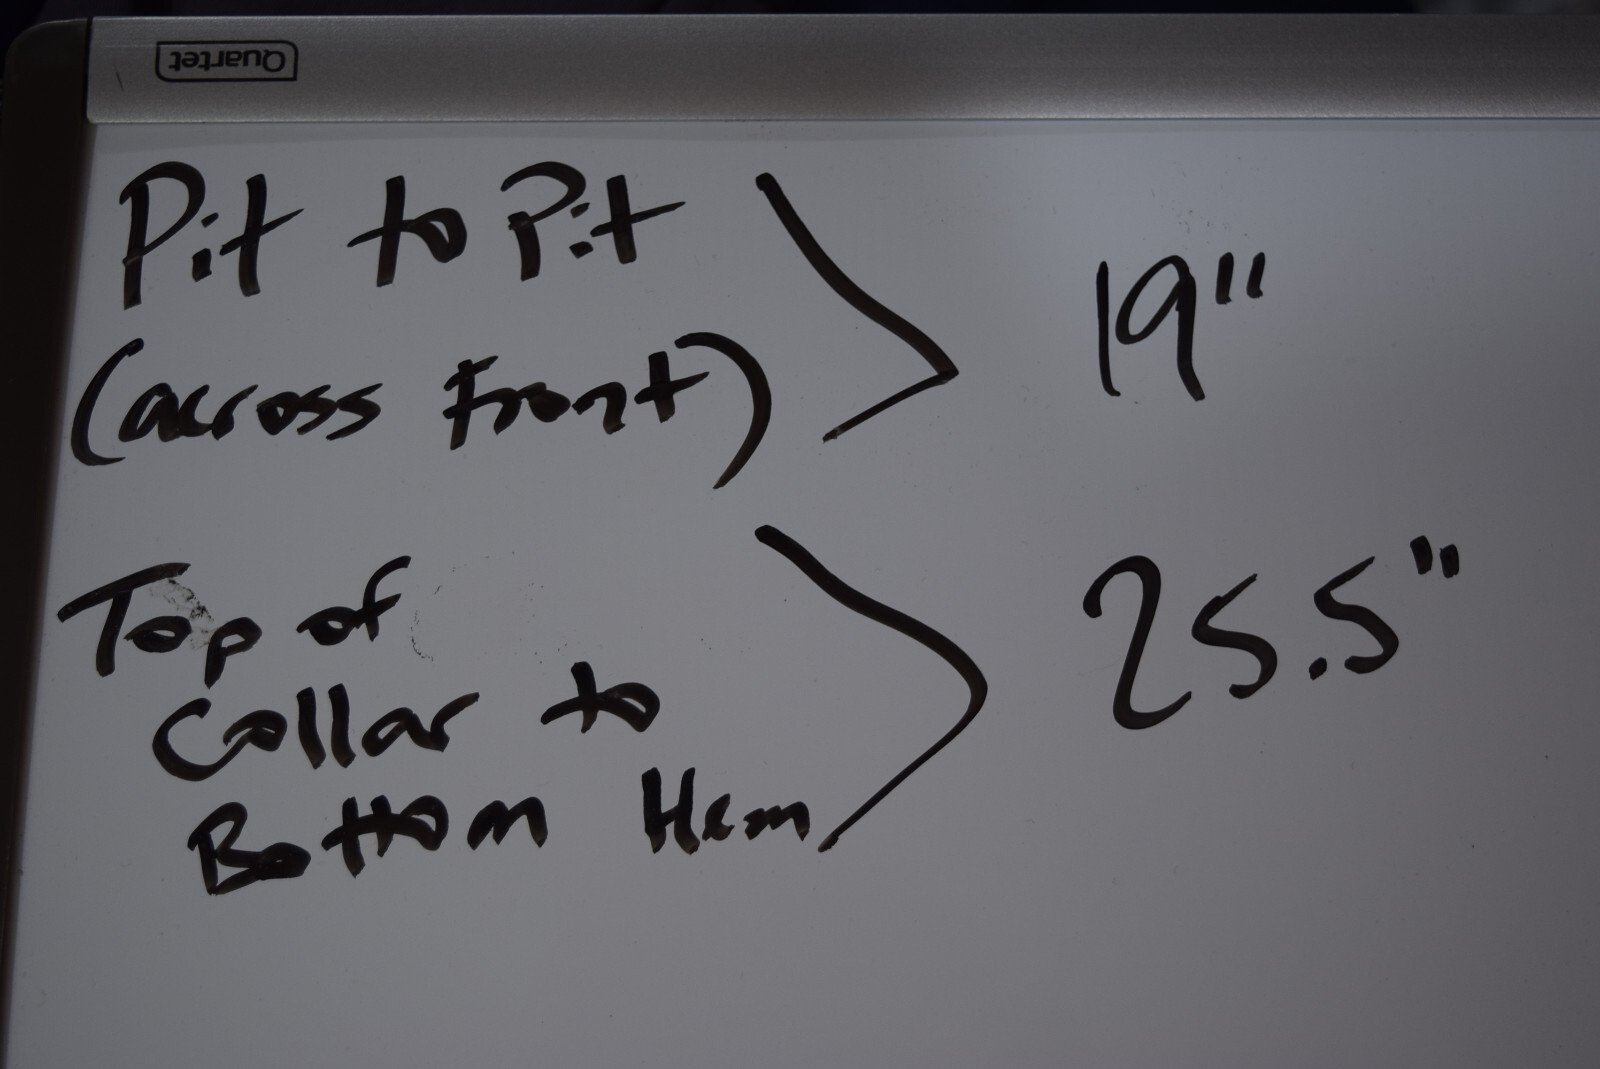 Quartet
Pit to Pit
(across Front)
19"
Top of
Collar to
Bottom Hem
25.5"